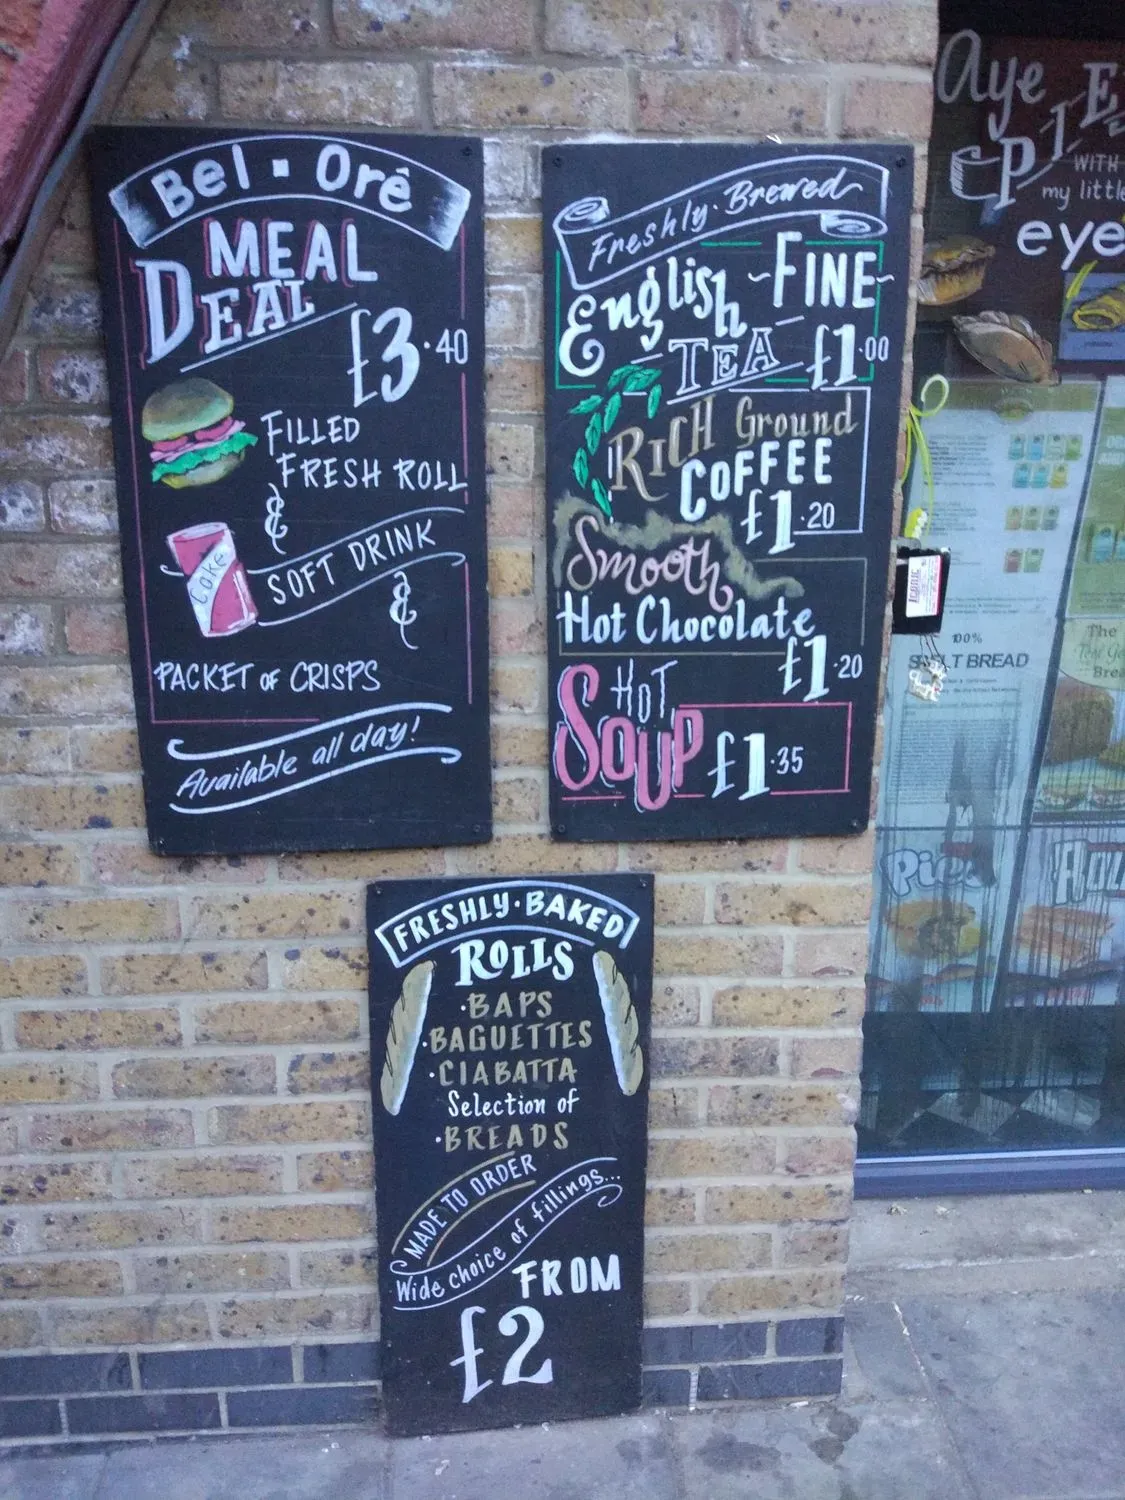 Bel · Orê
MEAL
DEAL
£3.40
FILLED
FRESH ROLL
&
SOFT DRINK
&
Coke
PACKET OF CRISPS
Available all day!
Freshly · Brewed
English ~FINE~
TEA £1.00
RICH Ground
COFFEE
£1.20
Smooth
Hot Chocolate
£1.20
HOT
SOUP £1.35
FRESHLY · BAKED
ROLLS
· BAPS
· BAGUETTES
· CIABATTA
Selection of
· BREADS
MADE TO ORDER
Wide choice of fillings...
FROM
£2
Aye
PIE
WITH
my little
eye
100%
BREAD
The
Pies